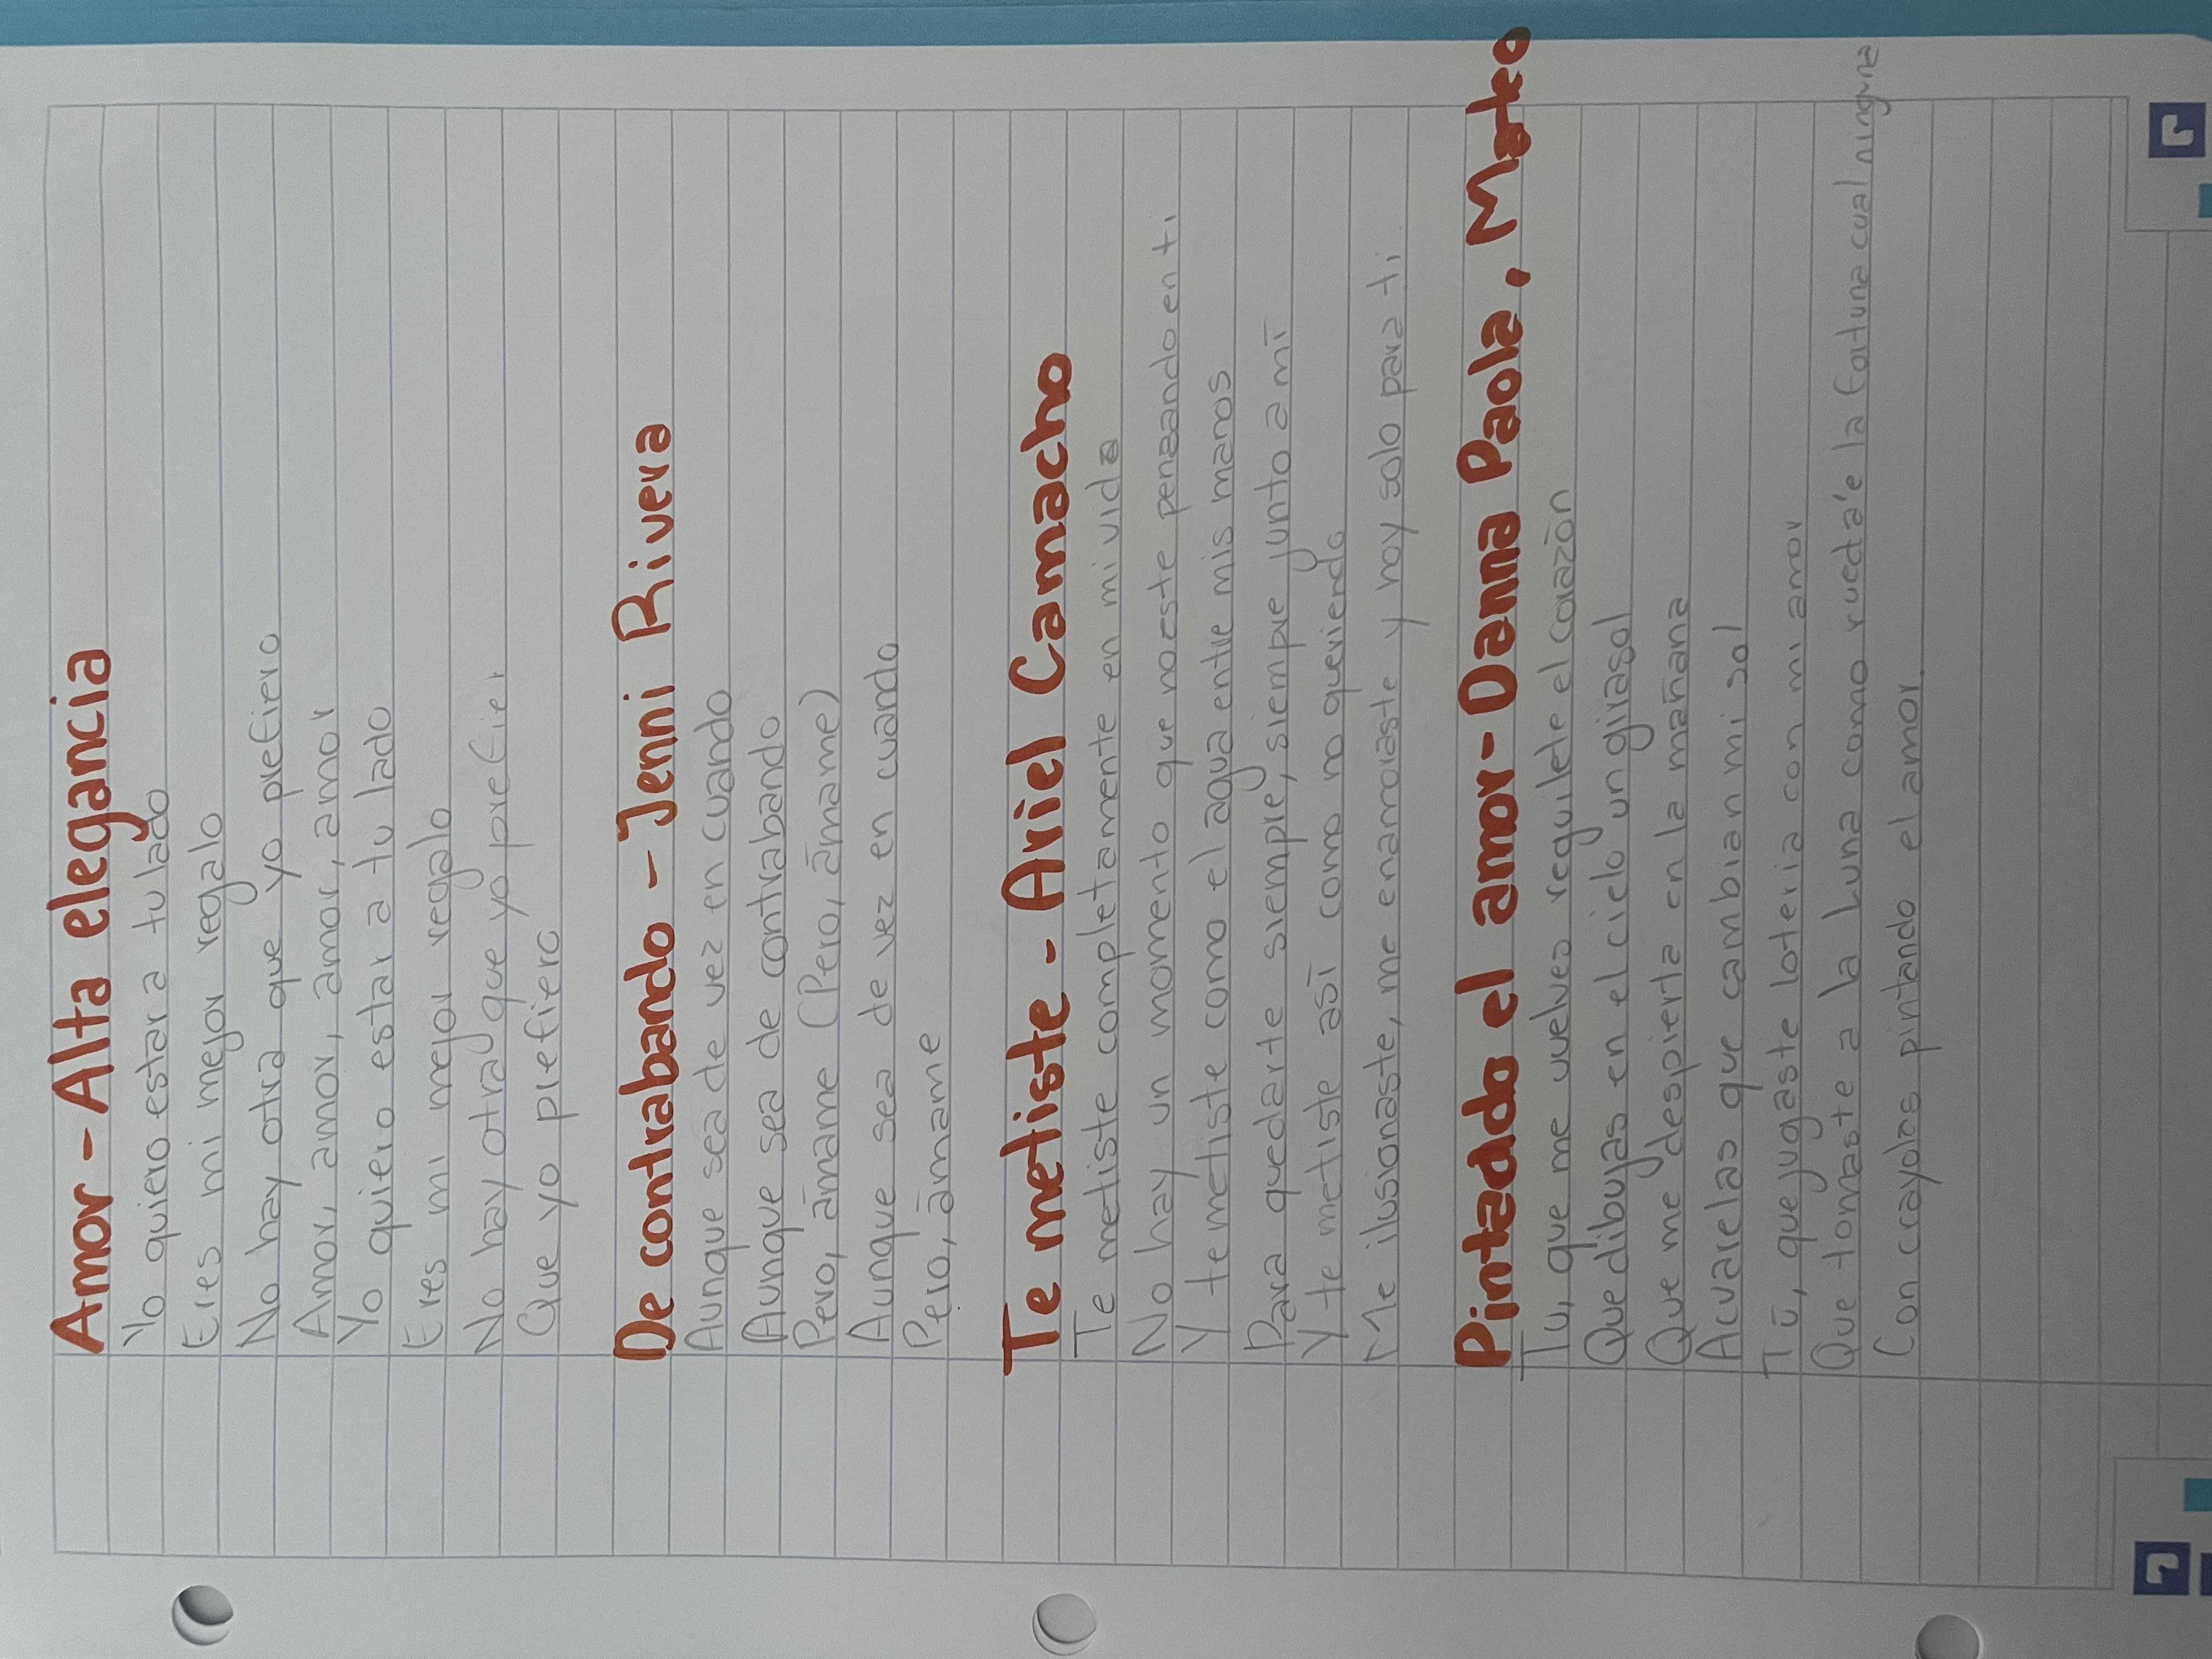 Amor - Alta elegancia
Yo quiero estar a tu lado
Eres mi mejor regalo
No hay otra que yo prefiero
Amor, amor, amor, amor
Yo quiero estar a tu lado
Eres mi mejor regalo
No hay otra que yo prefier
Que yo prefiero
De contrabando - Jenni Rivera
Aunque sea de vez en cuando
Aunque sea de contrabando
Pero, ámame (Pero, ámame)
Aunque sea de vez en cuando
Pero, ámame
Te metiste - Ariel Camacho
Te metiste completamente en mi vida
No hay un momento que no este pensando en ti
Y te metiste como el agua entre mis manos
Para quedarte siempre, siempre junto a mí
Y te metiste así como no queriendo
Me ilusionaste, me enamoraste y hoy solo para ti
Pintado el amor - Danna Paola, Mateo
Tu, que me vuelves reguilete el corazón
Que dibujas en el cielo un girasol
Que me despierta en la mañana
Acuarelas que cambian mi sol
Tú, que jugaste loteria con mi amor
Que tomaste a la Luna como rueda'e la fortuna cual ninguna
Con crayolas pintando el amor.